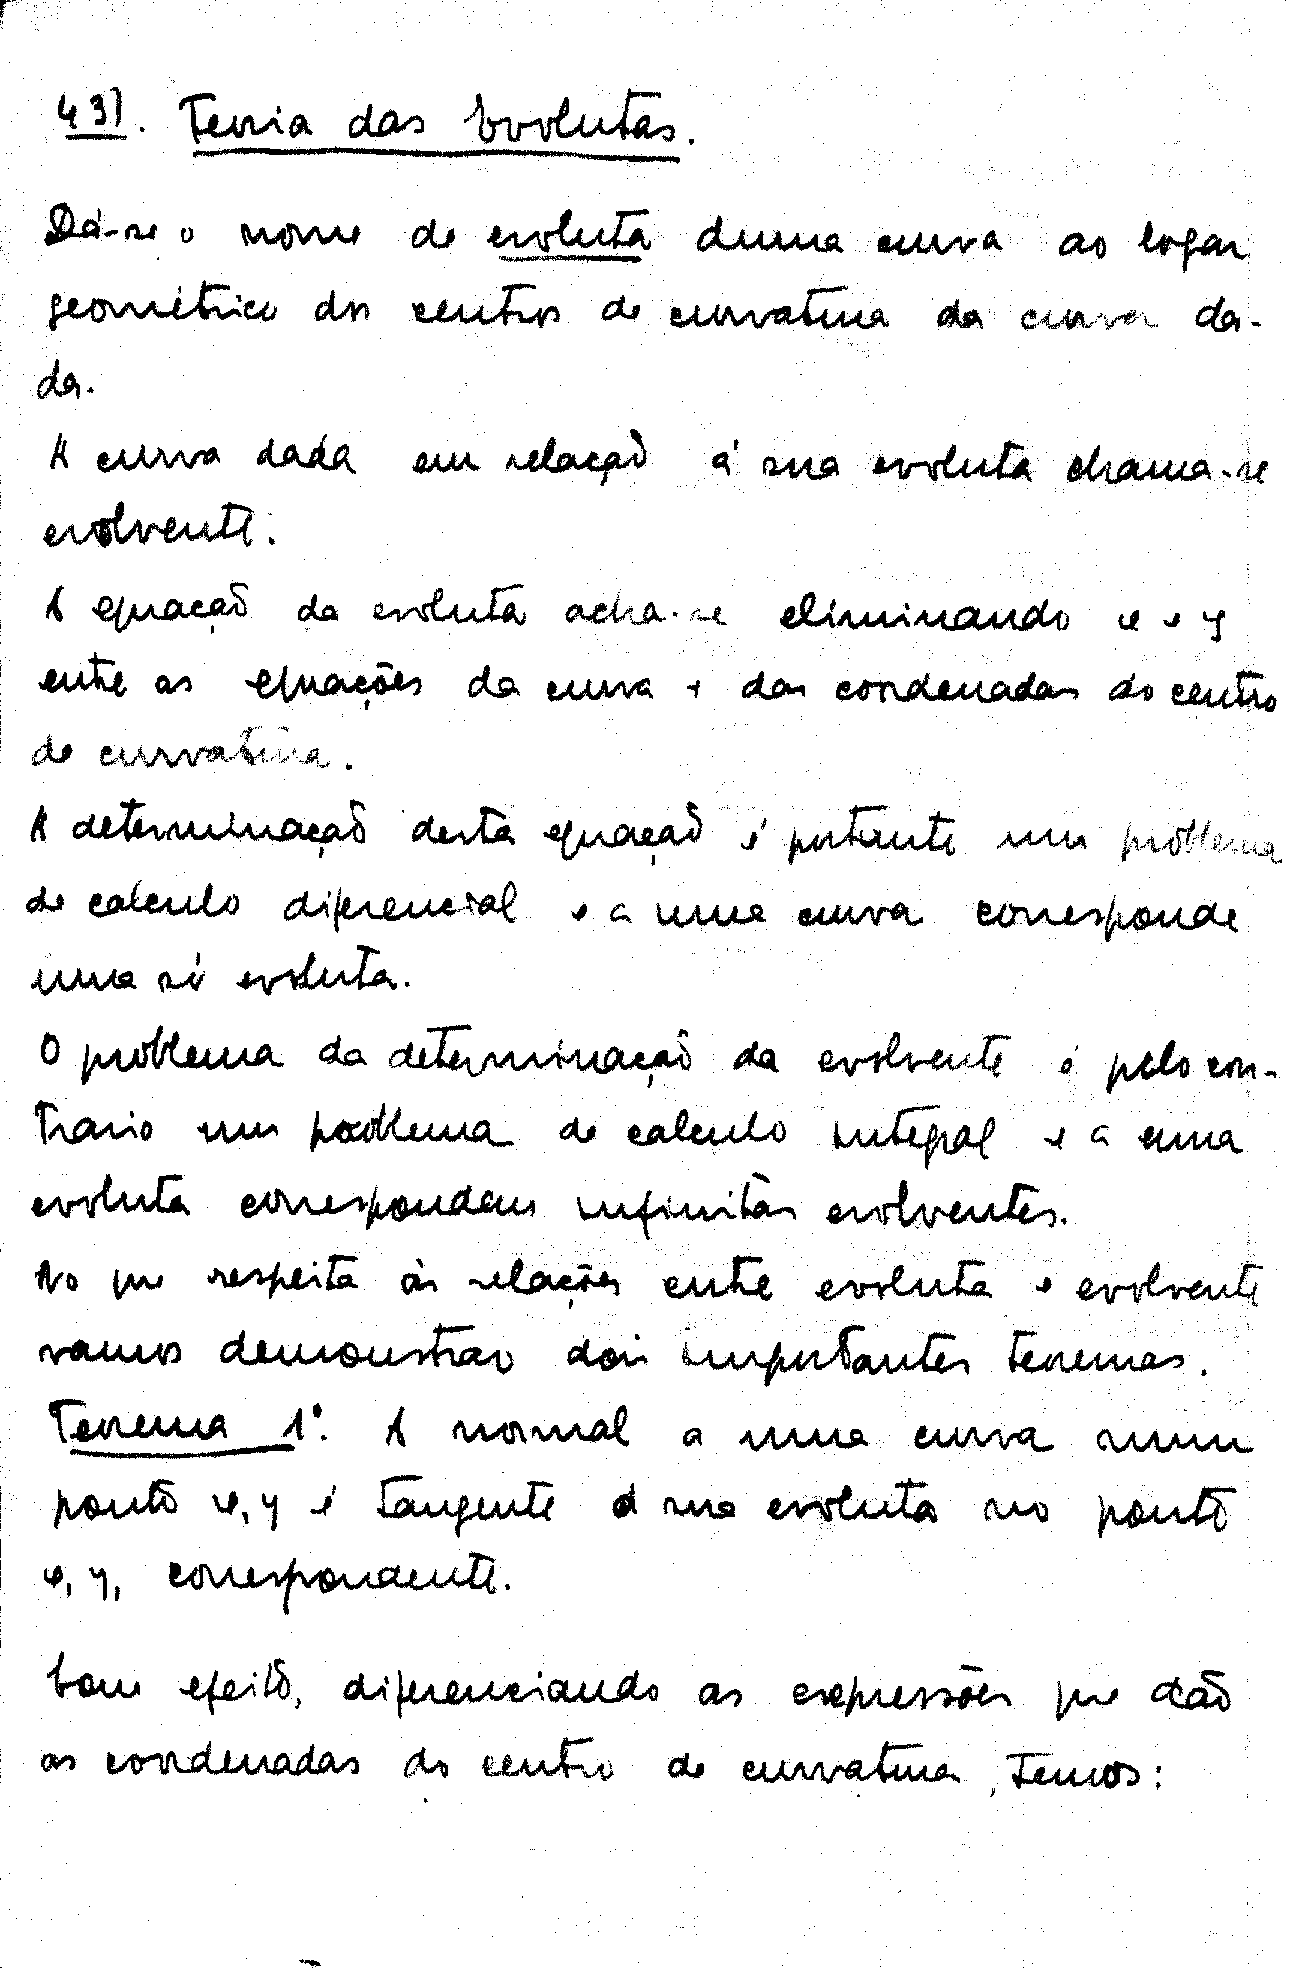 43). Teoria das Evolutas.
Dá-se o nome de evoluta duma curva ao logar
geométrico dos centros de curvatura da curva da-
da.
A curva dada em relação á sua evoluta chama-se
evolvente.
A equação da evoluta acha-se eliminando x e y
entre as equações da curva e das coordenadas do centro
de curvatura.
A determinação desta equação é portanto um problema
de calculo diferencial e a uma curva corresponde
uma só evoluta.
O problema da determinação da evolvente é pelo con-
trario um problema de calculo integral e a uma
evoluta correspondem infinitas evolventes.
No que respeita ás relações entre evoluta e evolvente
vamos demonstrar dois importantes teoremas.
Teorema 1º. A normal a uma curva num
ponto x, y é tangente á sua evoluta no ponto
x₁ y₁ correspondente.
Com efeito, diferenciando as expressões que dão
as coordenadas do centro de curvatura, temos: